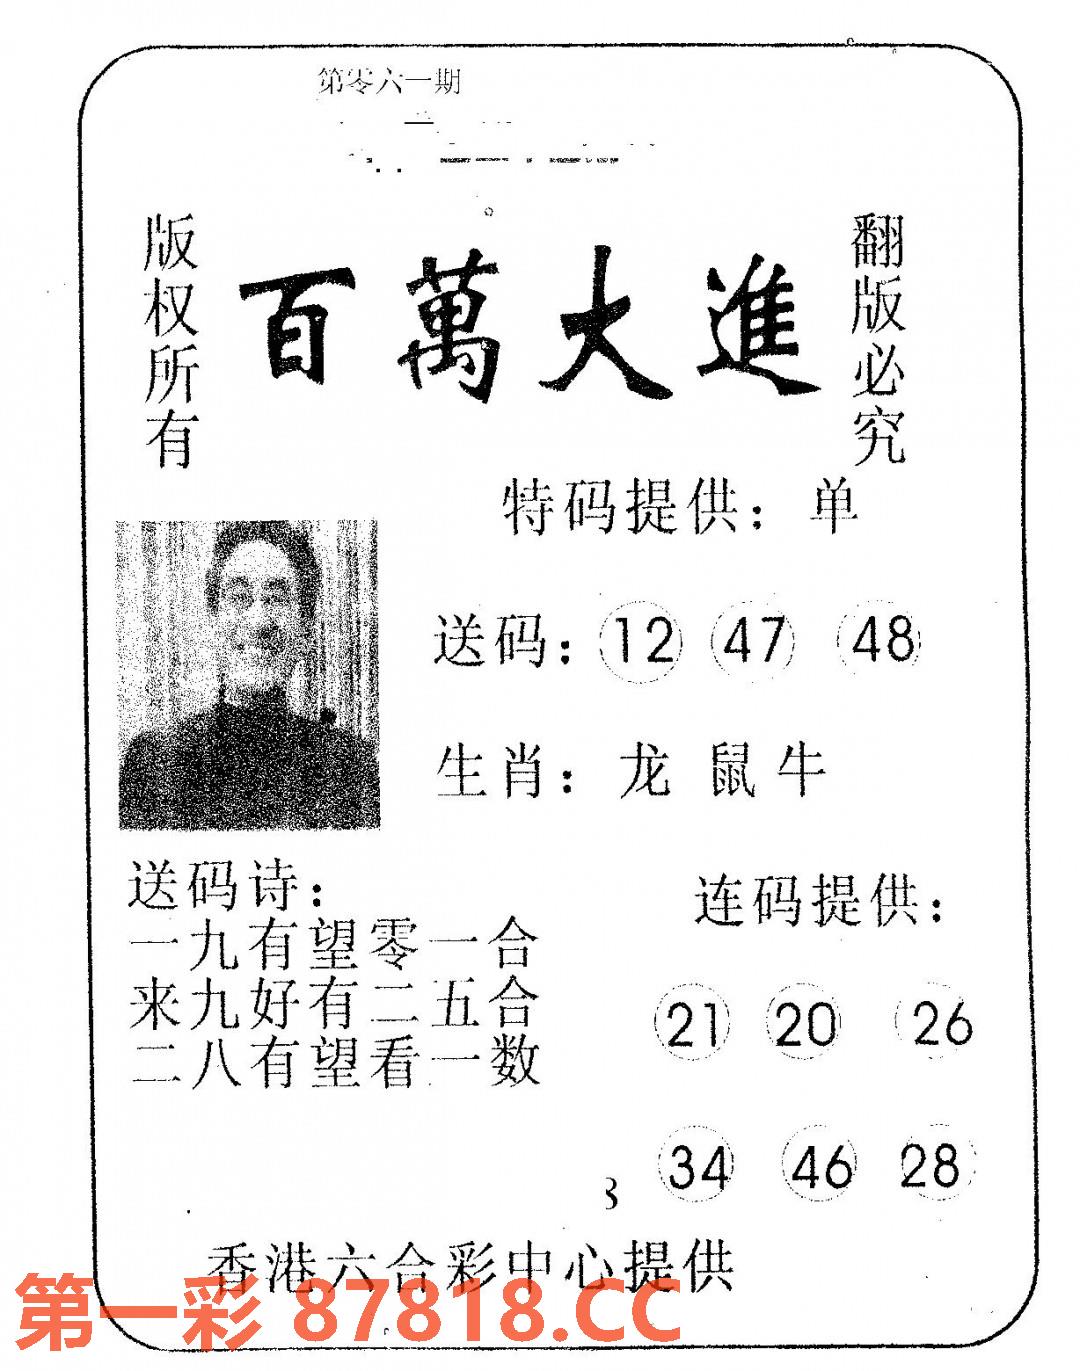 第零六一期
版权所有
百萬大進
翻版必究
特码提供：单
送码：12 47 48
生肖：龙 鼠 牛
送码诗：
一九有望零一合
来九好有二五合
二八有望看一数
连码提供：
21 20 26
34 46 28
香港六合彩中心提供
第一彩 87818.CC